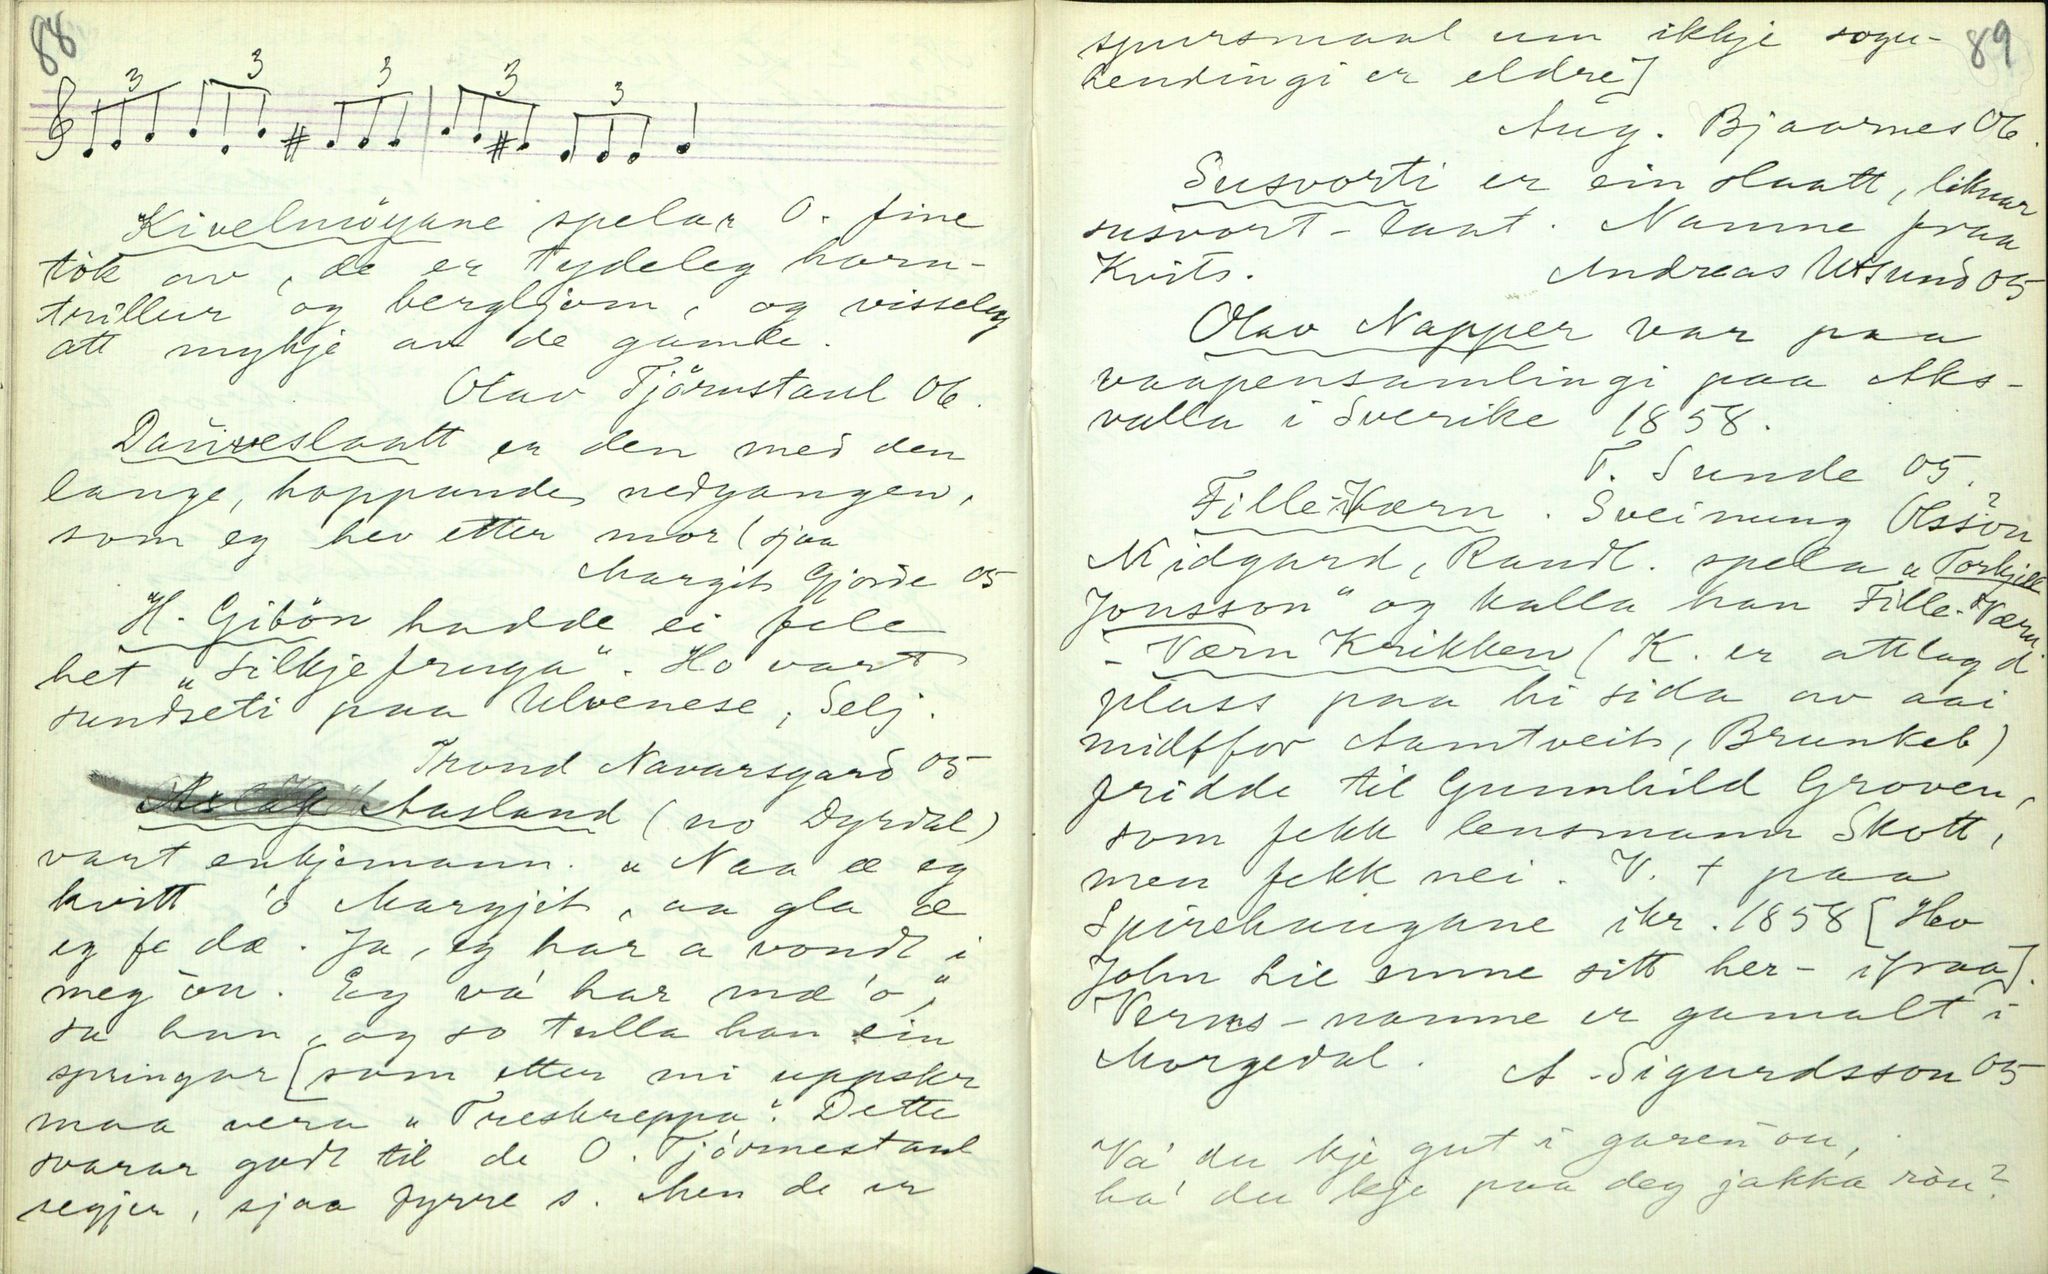 88
3 3 3 3 3
"Kivelmöyane spelar O. fine
tök av, de er tydeleg horn-
trillur og bergljom, og visseleg
att mykje av de gamle.
Olav Tjörnstaul 06.
Danseslaatt er den med den
lange, hoppande nedgangen,
som eg hev etter mor (sjaa
Margit Gjorde 05
H. Giböen hadde ei fele
het "Silkjefruga". Ho vart
sundseti paa Ulvenese, Selj.
Trond Navarsgard 05
Aslak Aasland (no Dyrdal)
vart enkjemann. "Naa æ eg
kvitt 'o Margjit, aa gla æ
eg fe dæ. Ja, eg har a vondt i
meg òu. Eg va' har mæ 'o",
sa han, og so tulla han ein
springar [som etter mi uppskr
maa vera "Treskreppa". Dette
svarar godt til de O. Tjörnestaul
segjer, sjaa fyrre s. Men de er
89
spursmaal um ikkje sogu-
hendingi er eldre]
Aug. Bjaarnes 06.
Susvorti er ein slaatt, liknar
susvort-laat. Namne fraa
Kvits.
Andreas Utsund 05
Olav Napper var paa
vaapensamlingi paa Aks-
valla i Sverike 1858.
T. Sunde 05.
Fille-Værn. Sveinung Olsson
Midgard, Randl. spela "Torkjell
Jonsson" og kalla han Fille-Værn
- Værn Krikken (K. er attlagd
plass paa hi sida av aai
midtfor Aamtveit, Brunkeb)
fridde til Gunnhild Groven,
som fekk lensmann Skott,
men fekk nei. V. + paa
Spirehaugane ikr. 1858 [Hev
John Lie emne sitt her-ifraa].
Verns-namne er gamalt i
Morgedal.
A. Sigurdsson 05
Va' du kje gut i garen òu,
ha' du kje paa deg jakka ròu?